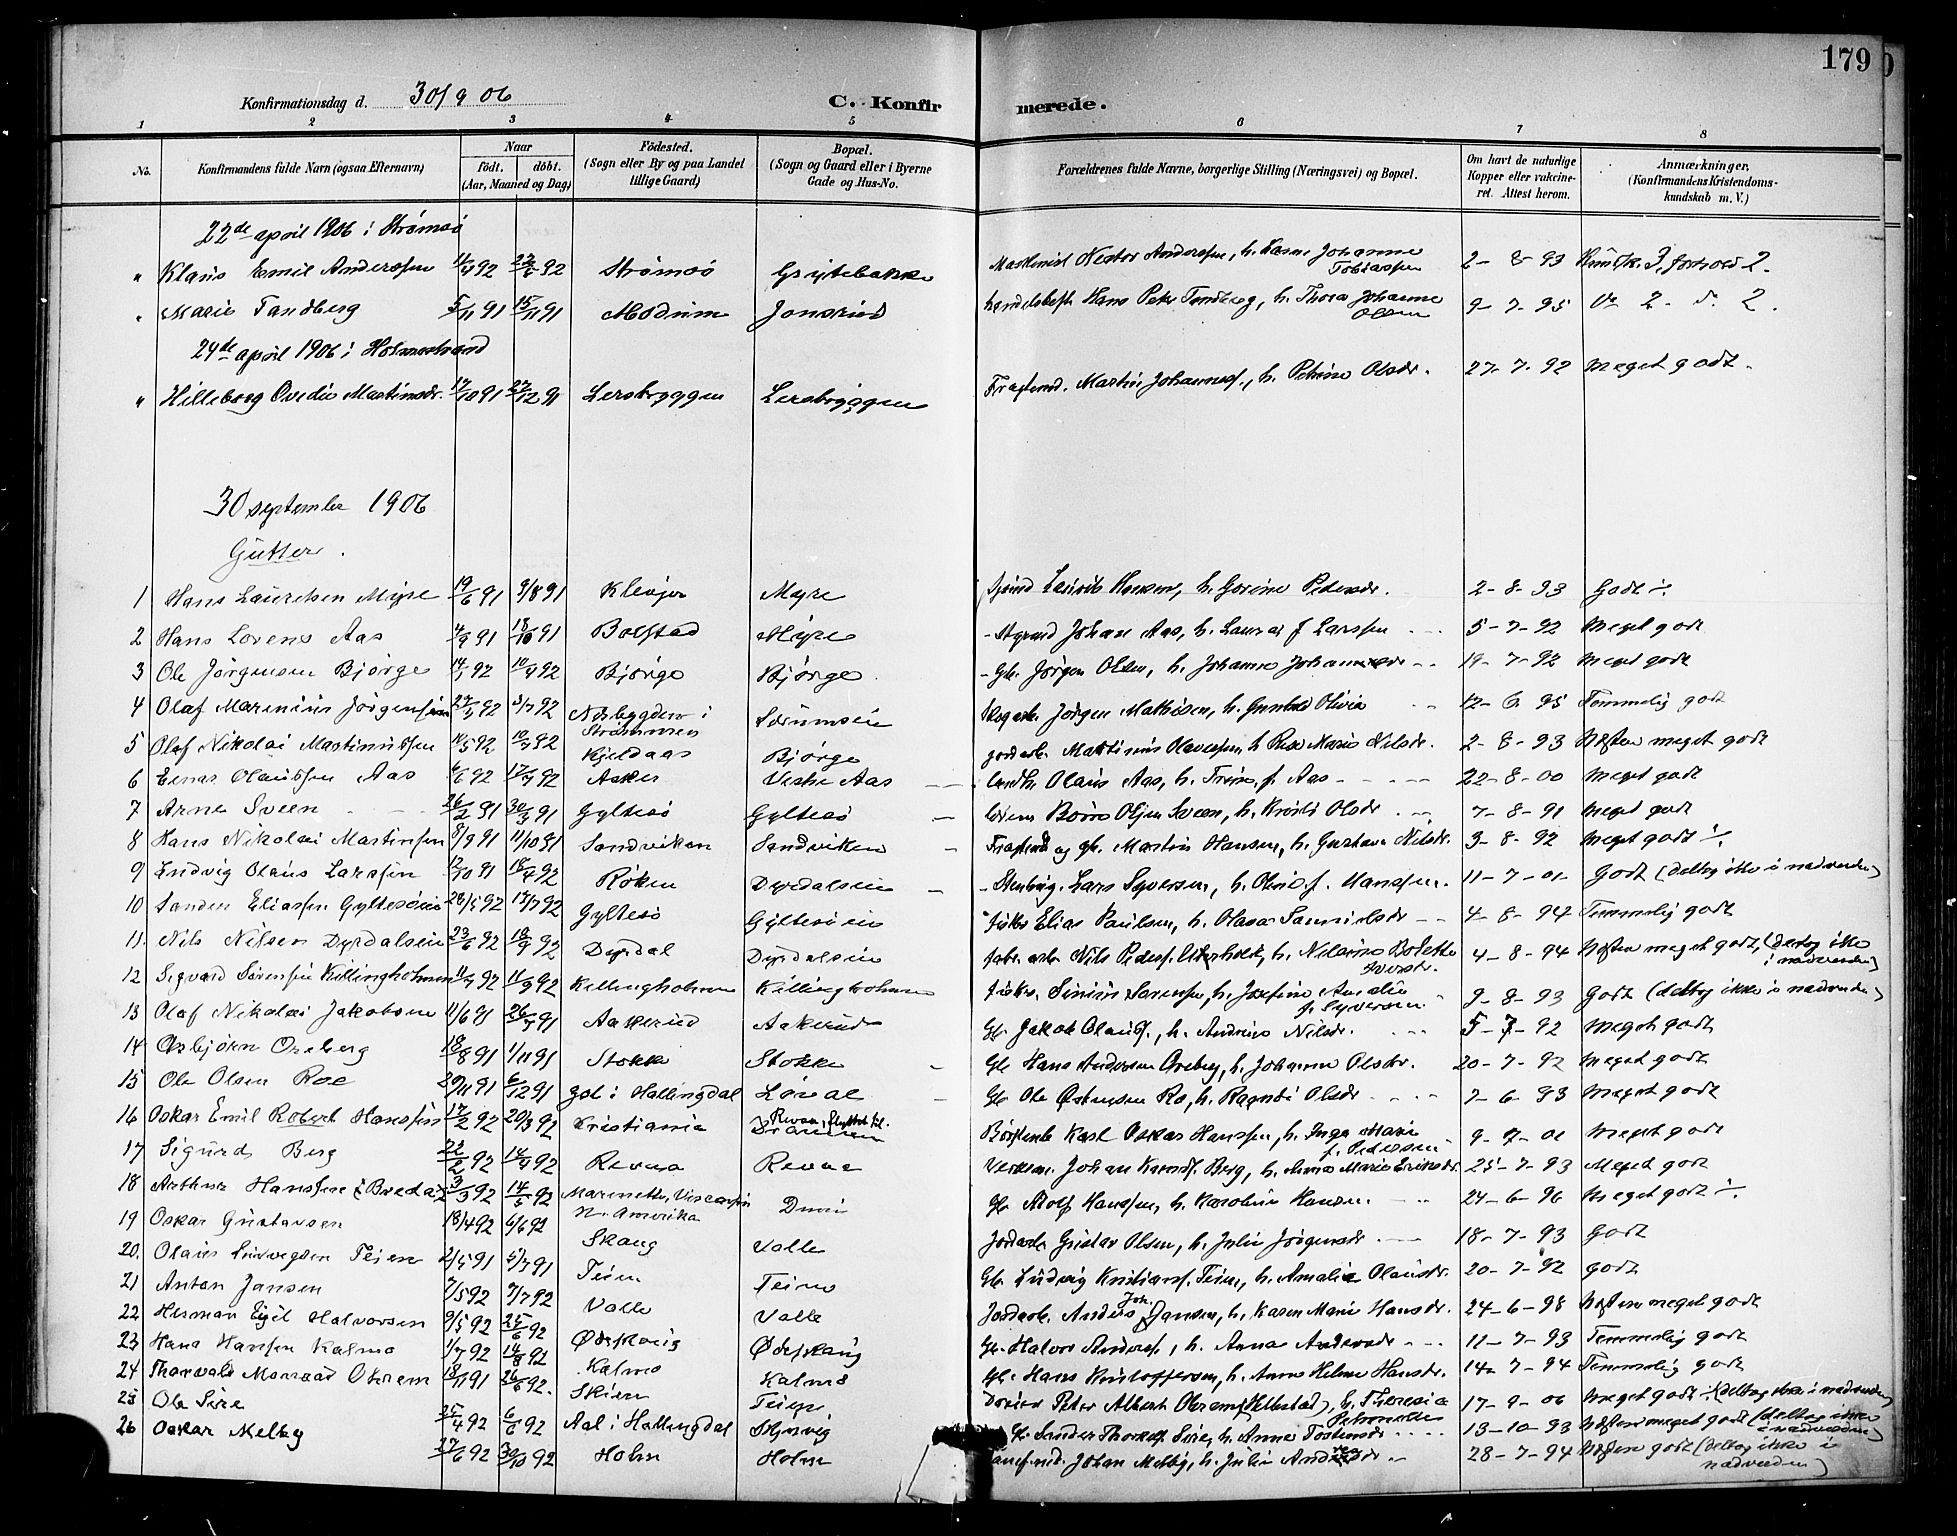 179
Konfirmationsdag d. 30/9 06
C. Konfirmerede.
1 2 3 4 5 6 7 8
No. Konfirmandens fulde Navn (ogsaa Efternavn) Naar født. døbt. (Aar, Maaned og Dag) Fødested. (Sogn eller By og paa Landet tillige Gaard) Bopæl. (Sogn og Gaard eller i Byerne Gade og Hus-No. Forældrenes fulde Navne, borgerlige Stilling (Næringsvei) og Bopæl. Om havt de naturlige Kopper eller vakcineret. Attest herom. Anmærkninger. (Konfirmandens Kristendomskundskab m. V.)
22de april 1906 i Strømsø
" Klaus Emil Anderssen 92 92 Strømsø Grytebakke Maskinist Anderssen, h. Johanne Tobiassen 2-8-93 forhold 2.
" Marie Tandberg 5/11 91 15/11 91 Modum Jonsrud Hans Peter Tandberg, h. Thora Johanne Olsen 9-7-95 2. 2.
24de april 1906 i Holmestrand
" Hilleborg Ovedie Martinsdr. 17/10 91 27/12 91 Lersbryggen Lersbryggen Fragtemd. Martin Johanness., h. Petrine Olsdr. 27-7-92 meget godt.
30 september 1906
Gutter.
1 Hans Lauritsen Myre 19/6 91 9/8 91 Klevjer Myre Hansen, h. Gorine Pedersdr. 2-8-93 Godt ÷
2 Hans Lorens Aas 4/9 91 18/10 91 Bolstad Myre Johan Aas, h. Laura f. Larssen 5-7-92 Meget godt
3 Ole Jørgensen Bjørge 14/1 92 10/4 92 Bjørge Bjørge Gb. Jørgen Olsen, h. Johanne Johannesdr. 19-7-92 Meget godt
4 Olaf Marinius Jørgensen 92 3/7 92 Nesbygden i Strømmen Sørumseie Skogarb. Jørgen Mathisen, h. Gunhild Olivia 12-6-95 Temmelig godt
5 Olaf Nikolai Martinussen 11/5 92 10/7 92 Kjeldaas Bjørge Martinus Olaussen, h. Marie Nilsdr. 2-8-93 Næsten meget godt
6 Einar Olaussen Aas 6/6 92 17/7 92 Asker Vestre Aas Landh. Olaus Aas, h. Trine f. Aas 22-8-00 Meget godt
7 Arne Sveen 26/2 91 30/3 91 Gyltesø Gyltesø Sveen, h. Kristi Olsdr 7-8-91 meget godt
8 Hans Nikolai Martinsen 8/9 91 11/10 91 Sandviken Sandviken Fragtemd og gb. Martin Hansen, h. Gustava Nilsdr. 3-8-92 Meget godt ÷
9 Ludvig Olaus Larssen 12/10 91 18/4 92 Røken Dyrdalseie Lars Syversen, h. Olivie f. Hanssen. 11-7-01 Godt (deltog ikke i nadverden)
10 Sander Eliassen Gyltesøeie 28/5 92 17/7 92 Gyltesø Gyltesøeie Fisker Elias Paulsen, h. Hava Samuelsdr 4-8-94 Temmelig godt
11. Nils Nilsen Dyrdalseie 23/6 92 18/9 92 Dyrdal Dyrdalseie Nils Pederss. h. Nilsine Bolette Iversdr. 4-8-94 Næsten meget godt, (deltog ikke i nadverden)
12 Sigvard Sørensen Killingholmen 11/7 92 11/9 92 Killingholmen Killingholmen Fisker. Sørensen, h. Josefine Amalie f. Syversen 9-8-93 Godt (deltog ikke i nadverden)
13 Olaf Nikolai Jakobsen 11/6 91 26/7 91 Aakerud Aakerud Gb. Jakob Olauss., h. Andrine Nilsdr. 5-7-92 Meget godt
14 Asbjørn Oreberg 18/8 91 1/11 91 Stokke Stokke Gb. Hans Andersen Oreberg, h. Johanne Olsdr. 20-7-92 Meget godt
15 Ole Olsen Roe 29/11 91 6/12 91 Gol i Hallingdal Løval Gb. Ole Østensen Ro, h. Ragndi Olsdr 7-6-93 Meget godt
16 Oskar Emil Robert Hanssen 17/2 92 20/3 92 Kristiania Revaa, flyttet til Drammen Børstenb. Karl Oskar Hanssen, h. Inga Marie f. Pedersen 9-7-01 Meget godt
17 Sigurd Berg 22/2 92 14/4 92 Revaa Revaa Johan Berg, h. Anna Marie Eriksdr. 25-7-93 Meget godt
18 Arthur Hanssen Breda 3/3 92 14/5 92 Marinette, Viscansin N. Amerika Gb. Adolf Hanssen, h. Karoline Hansen 24-6-96 Meget godt ÷
19 Oskar Gustavsen 18/4 92 6/6 92 Skoug Valle Jordarb. Gustav Olsen, h. Julie Jørgensdr. 18-7-93 Godt
20. Olaus Ludvigsen Teien 2/5 91 5/7 91 Teien Teien Gb. Ludvig Kristianss. Teien, h. Amalie Olausdr. 20-7-92 godt
21 Anton Jansen 7/5 92 7/7 92 Valle Valle Jordarb. Anders Joh. Jansen, h. Karen Marie Hansdr. 24-6-98 Næsten meget godt
22 Herman Egil Halvorsen 9/5 92 25/6 92 Ødeskoug Ødeskoug Gb. Halvor Anderss., h. Anna Andersdr 11-7-93 Temmelig godt
23 Hans Hansen Kalmo 1/7 92 14/8 92 Kalmo Kalmo Gb. Hans Kristoffersen, h. Anne Helene Hansdr. 14-7-94 Temmelig godt
24 Thorvald Okrem 18/11 91 26/6 92. Skien Teien Peter Albert Okrem (Sellestad), h. Theresia Petronelle 17-9-06 Meget godt (deltog ikke i nadverden)
25 Ole Sire 25/4 92 6/6 92 Aal i Hallingdal Skjervig Gb. Sander Thorless. Sire, h. Anne Tostensdr 13-10-93 Næsten meget godt (deltog ikke i nadverden)
26 Oskar Melby 27/6 92 30/10 92 Holm Holm Johan Melby, h. Julie 28-7-94 Næsten godt (deltog ikke i nadverden)